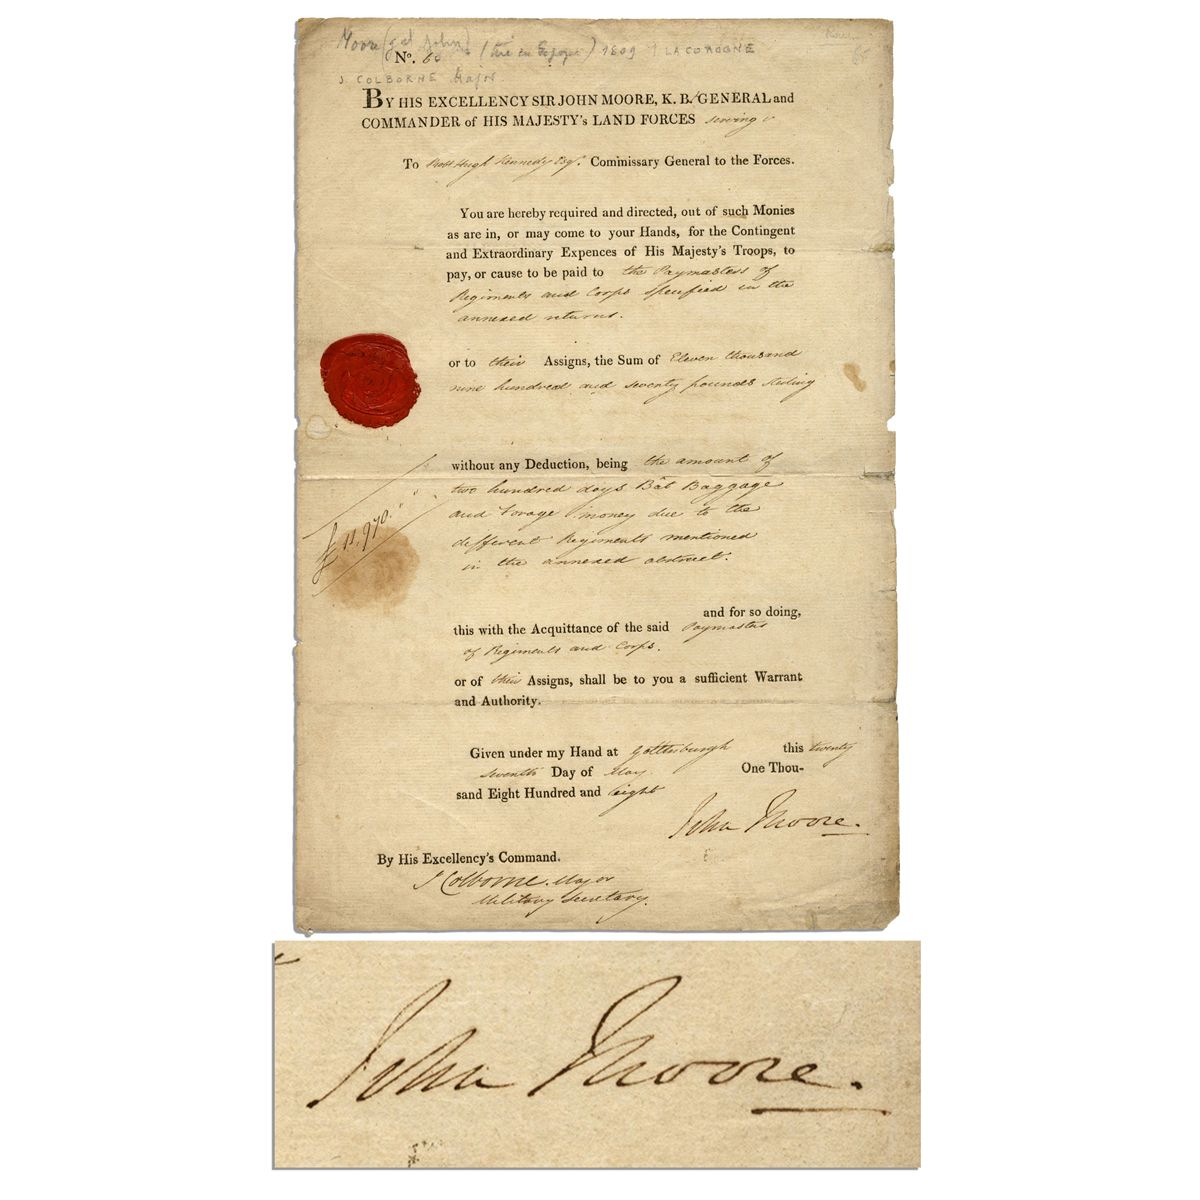 Moore (gal John) (tué en Espagne) 1809 / LA COROGNE
No. 60
J. COLBORNE Major
BY HIS EXCELLENCY SIR JOHN MOORE, K. B. GENERAL and
COMMANDER of HIS MAJESTY's LAND FORCES serving
To Robt Hugh Kennedy Esqr. Commissary General to the Forces.
You are hereby required and directed, out of such Monies
as are in, or may come to your Hands, for the Contingent
and Extraordinary Expences of His Majesty's Troops, to
pay, or cause to be paid to the Paymasters of
Regiments and Corps specified in the
annexed returns.
or to their Assigns, the Sum of Eleven thousand
nine hundred and seventy pounds sterling
without any Deduction, being the amount of
two hundred days Bât Baggage
and Forage money due to the
£11,970 " "
different Regiments mentioned
in the annexed abstract.
and for so doing,
this with the Acquittance of the said Paymasters
of Regiments and Corps.
or of their Assigns, shall be to you a sufficient Warrant
and Authority.
Given under my Hand at Gottenburgh this twenty
seventh Day of May One Thou-
sand Eight Hundred and eight
John Moore.
By His Excellency's Command.
J Colborne. Major
Military Secretary.
John Moore.